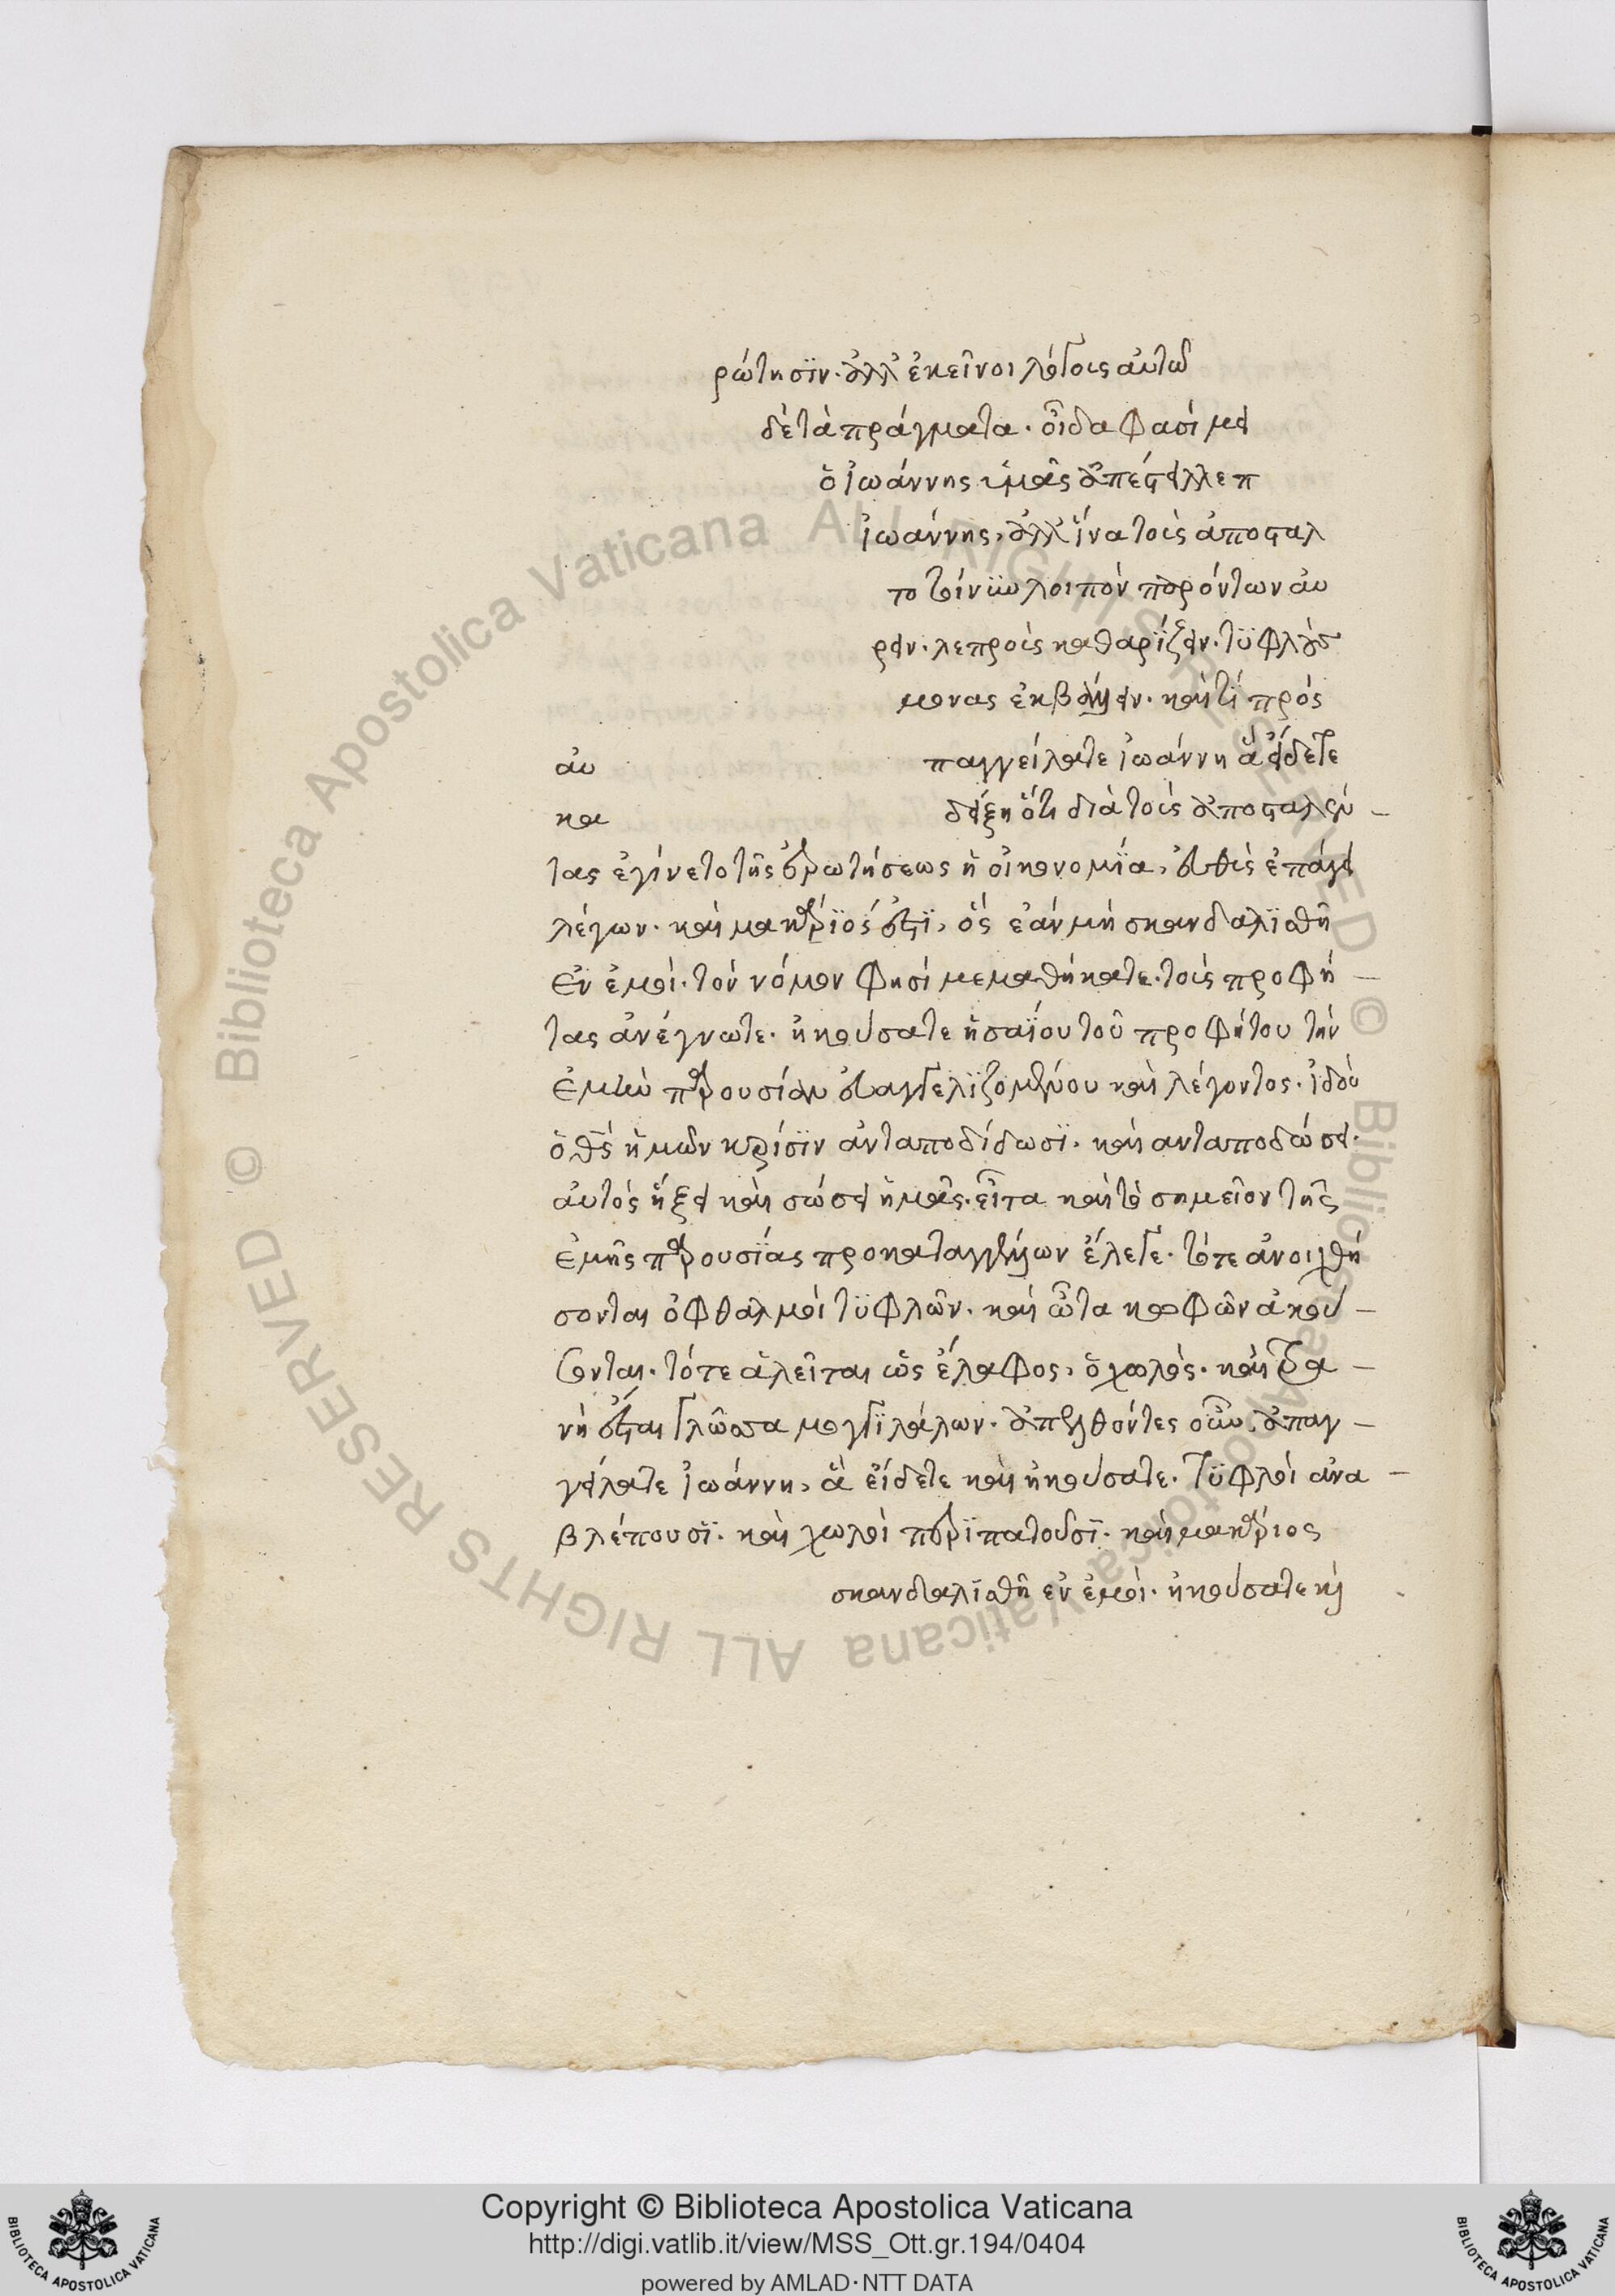 ρώτησϊν. ἀλλ' ἐκεῖνοι λόγοις αὐτῶ
δὲ τὰ πράγματα. οἶδα φασί με
ὁ ἰωάννης ὑμᾶς ἀπέστελλε π
ἰωάννης, ἀλλ' ἵνα τοὺς ἀποσταλ
το τίνϋω λοιπὸν παρόντων αυ
ρειν. λεπροὺς καθαρΐζειν. τϋφλοὺσ
μονας ἐκβάλλειν. καὶ τί πρὸς
αὐ παγγείλατε ἰωάννη ἃ εἴδετε
κα δείξη ὅτι διὰ τοὺς ἀποσταλέν –
τας ἐγίνετο τῆς ἐρωτήσεως ἡ οἰκονομΐα, εὐθὺς ἐπάγει
λέγων. καὶ μακάρϊός ἐστϊ, ὃς ἐὰν μὴ σκανδαλϊσθῆ
ἐν ἐμοί. τὸν νόμον φησὶ μεμαθήκατε. τοὺς προφή –
τας ἀνέγνωτε. ἠκούσατε ἡσαΐου τοῦ προφήτου τὴν
ἐμὴν παρουσίαν εὐαγγελϊζομένου καὶ λέγοντος. ἰδοὺ
ὁ θς ἡμῶν κρίσϊν ἀνταποδίδωσϊ. καὶ ανταποδώσει.
αὐτὸς ἥξει καὶ σώσει ἡμᾶς. εἶτα καὶ τὸ σημεῖον τῆς
ἐμῆς παρουσΐας προκαταγγέλλων ἔλεγε. τότε ἀνοιχθή
σονται ὀφθαλμοὶ τϋφλῶν. καὶ ὦτα κωφῶν ἀκού –
σονται. τότε ἁλεῖται ὡς ἔλαφος, ὁ χωλὸς. καὶ τρα –
νὴ ἔσται γλῶσσα μογγϊλάλων. ἀπελθόντες οὖν ἀπαγ –
γείλατε ἰωάννη, ἃ εἴδετε καὶ ἠκούσατε. τϋφλοὶ ἀνα –
βλέπουσϊ. καὶ χωλοὶ περϊπατοῦσϊ. καὶ μακάριος
σκανδαλϊσθῆ ἐν ἐμοί. ἠκούσατε κὶ
Copyright © Biblioteca Apostolica Vaticana
http://digi.vatlib.it/view/MSS_Ott.gr.194/0404
powered by AMLAD·NTT DATA